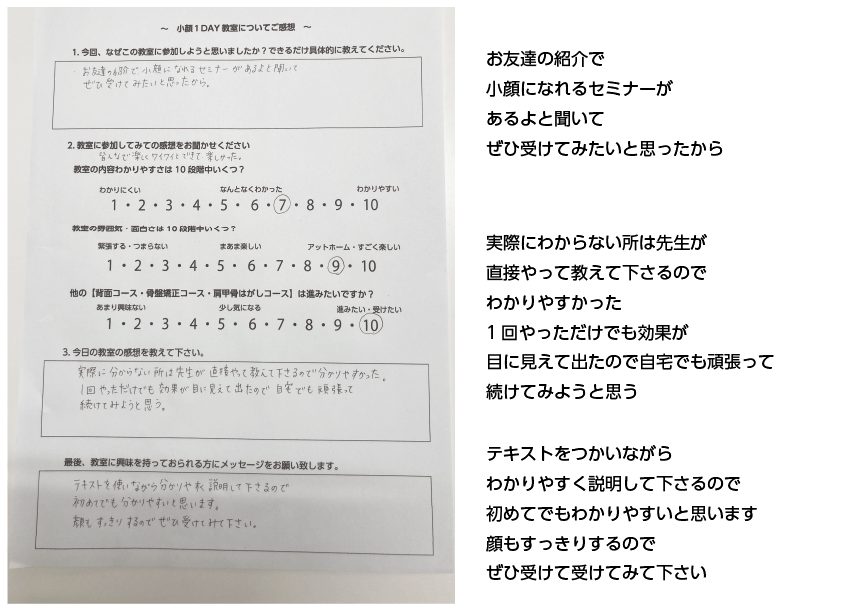 ～ 小顔1DAY教室についてご感想 ～
1. 今回、なぜこの教室に参加しようと思いましたか？できるだけ具体的に教えてください。
お友達の紹介で小顔になれるセミナーがあるよと聞いて
ぜひ受けてみたいと思ったから。
2. 教室に参加してみての感想をお聞かせください
皆んなで楽しくワイワイとできて楽しかった。
教室の内容わかりやすさは10段階中いくつ？
わかりにくい なんとなくわかった わかりやすい
1・2・3・4・5・6・7・8・9・10
教室の雰囲気・面白さは10段階中いくつ？
緊張する・つまらない まあまあ楽しい アットホーム・すごく楽しい
1・2・3・4・5・6・7・8・9・10
他の【背面コース・骨盤矯正コース・肩甲骨はがしコース】は進みたいですか？
あまり興味ない 少し気になる 進みたい・受けたい
1・2・3・4・5・6・7・8・9・10
3. 今日の教室の感想を教えて下さい。
実際に分からない所は先生が直接やって教えて下さるので分かりやすかった。
1回やっただけでも効果が目に見えて出たので自宅でも頑張って
続けてみようと思う。
最後、教室に興味を持っておられる方にメッセージをお願い致します。
テキストを使いながら分かりやすく説明して下さるので
初めてでも分かりやすいと思います。
顔もすっきりするのでぜひ受けてみて下さい。
お友達の紹介で
小顔になれるセミナーが
あるよと聞いて
ぜひ受けてみたいと思ったから
実際にわからない所は先生が
直接やって教えて下さるので
わかりやすかった
1回やっただけでも効果が
目に見えて出たので自宅でも頑張って
続けてみようと思う
テキストをつかいながら
わかりやすく説明して下さるので
初めてでもわかりやすいと思います
顔もすっきりするので
ぜひ受けて受けてみて下さい